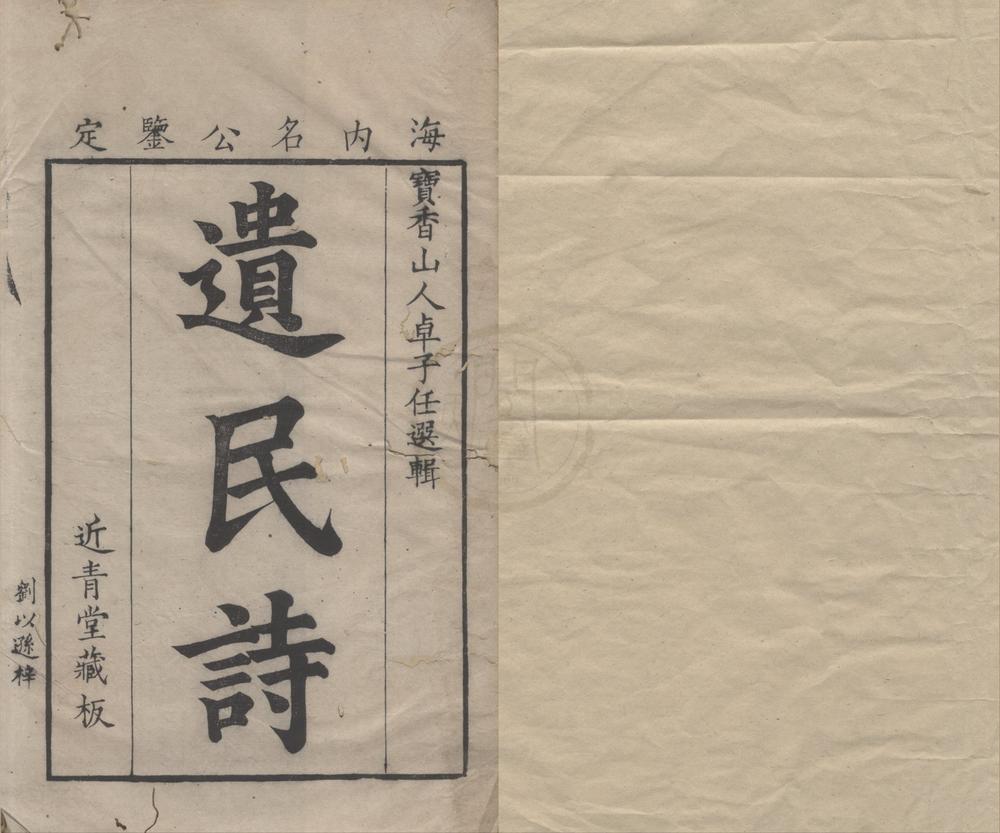 海内名公鑒定
寶香山人卓子任選輯
遺民詩
近青堂藏板
劉以遜梓